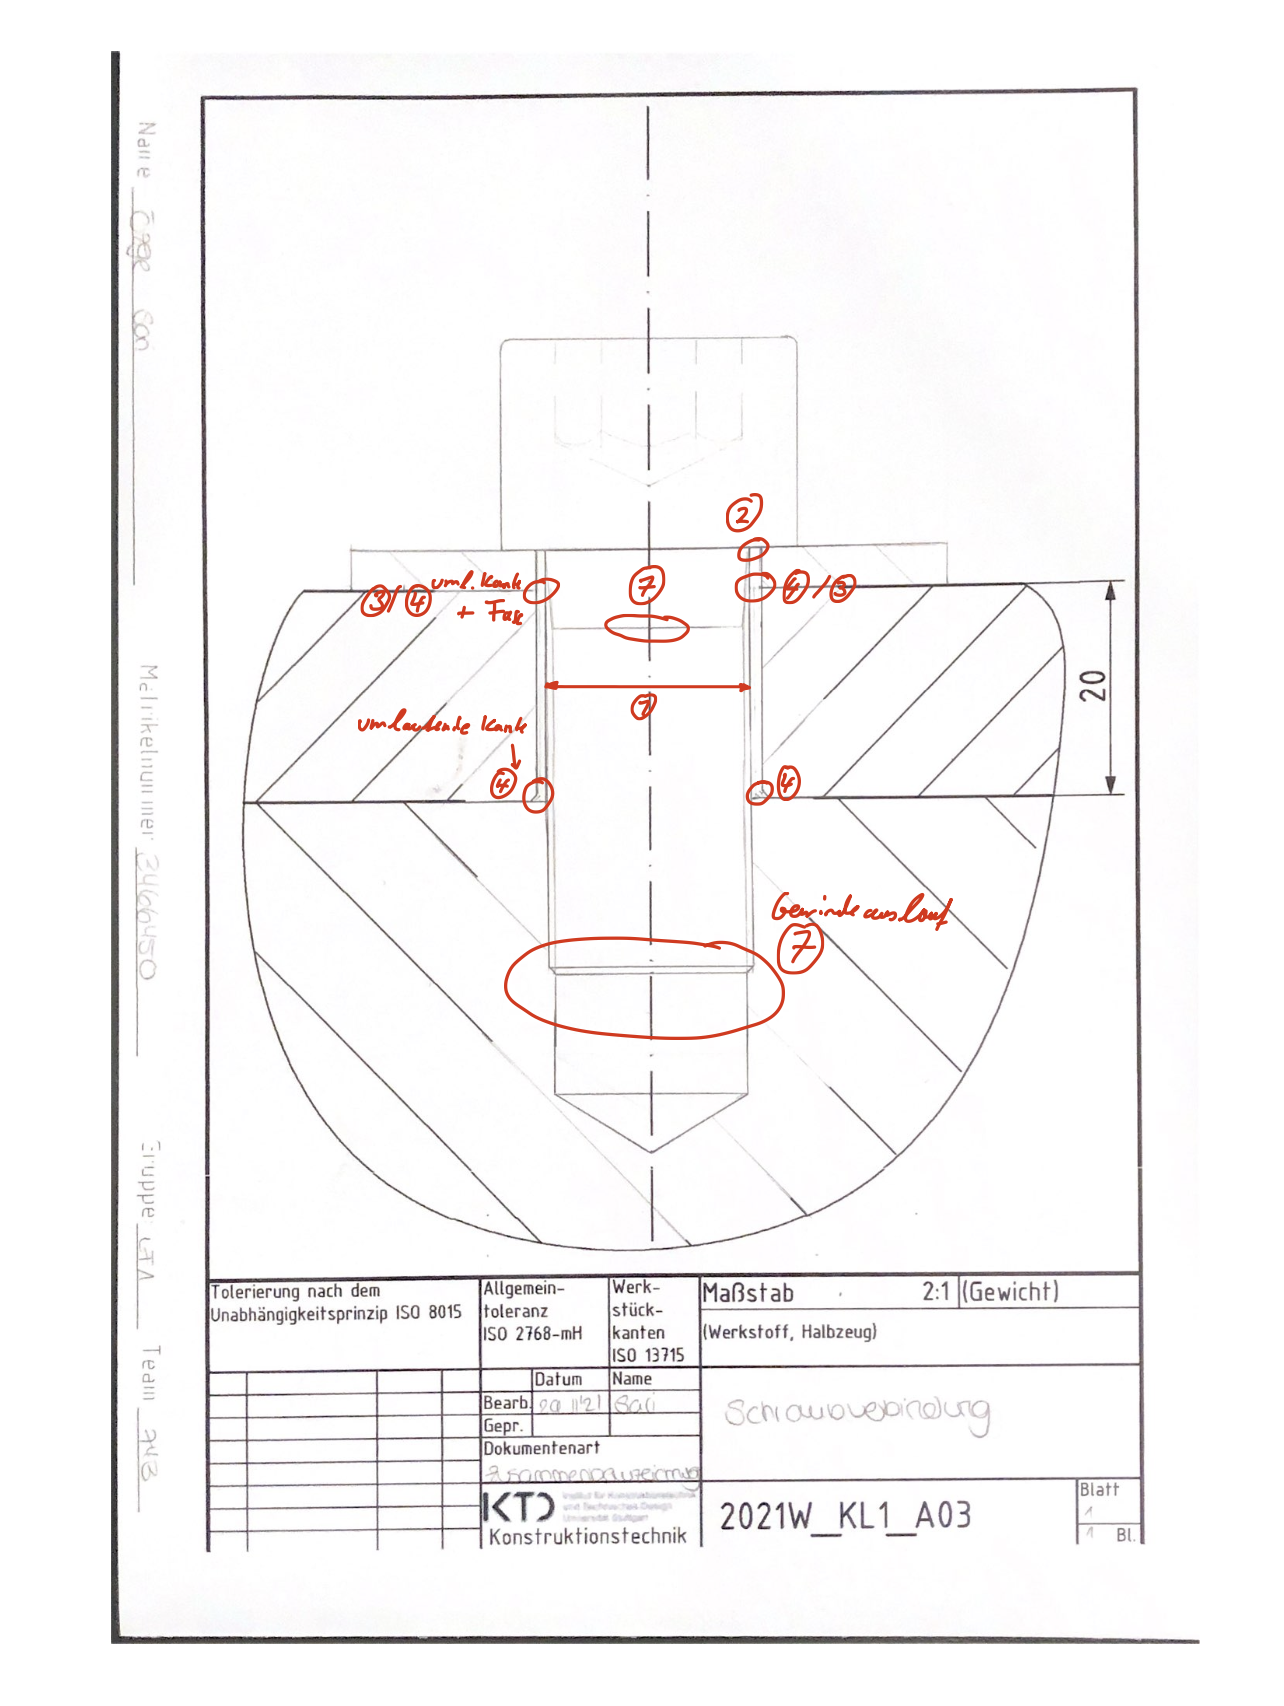 Name
Matrikelnummer 3466450
Gruppe LTA Team 74B
②
⑦
③/④ uml. Kante
+ Fase
④/③
⑦
20
umlaufende Kante
④
④
Gewindeauslauf
⑦
Tolerierung nach dem
Unabhängigkeitsprinzip ISO 8015
Allgemein-
toleranz
ISO 2768-mH
Werk-
stück-
kanten
ISO 13715
Maßstab 2:1 (Gewicht)
(Werkstoff, Halbzeug)
Datum Name
Bearb.
Gepr.
Dokumentenart
Zusammenbauzeichnung
Schraubverbindung
KTD Institut für Konstruktionstechnik
und Technisches Design
Universität Stuttgart
Konstruktionstechnik
2021W_KL1_A03
Blatt
1
1 Bl.